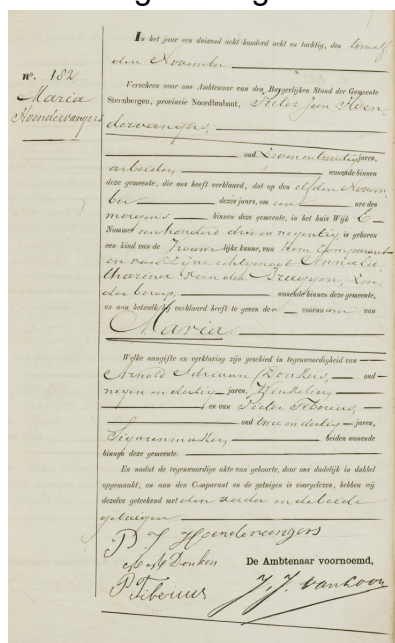 In het jaar een duizend acht honderd acht en tachtig, den twaalf
den November
nº. 182
Maria
Hoendervangers
Verscheen voor ons Ambtenaar van den Burgerlijken Stand der Gemeente
Steenbergen, provincie Noordbrabant, Pieter Jan Hoen
dervangers,
oud Zeven en twintig jaren,
arbeider, wonende binnen
deze gemeente, die ons heeft verklaard, dat op den elfden Novem
ber dezes jaars, om een ure des
morgens binnen deze gemeente, in het huis Wijk E
Nummer een honderd drie en negentig is geboren
een kind van de Vrouwelijke kunne, van Hem Comparant
en van zijne echtgenoot Anna Ca
tharina van der Bruggen, Zon
der beroep, wonende binnen deze gemeente,
en aan hetwelk hij verklaard heeft te geven den voornaam van
Maria
Welke aangifte en verklaring zijn geschied in tegenwoordigheid van
Arnold Adriaan Donkers, oud
negen en dertig jaren, Winkelier,
en van Pieter Tiberius,
oud twee en dertig jaren,
Sigarenmaker, beiden wonende
binnen deze gemeente.
En nadat de tegenwoordige akte van geboorte, door ons dadelijk in dubbel
opgemaakt, en aan den Comparant en de getuigen is voorgelezen, hebben wij
dezelve geteekend met den vader en de beide
getuigen.
P. J. Hoendervangers
A. A. Donkers De Ambtenaar voornoemd,
P. Tiberius J. J. van Loon